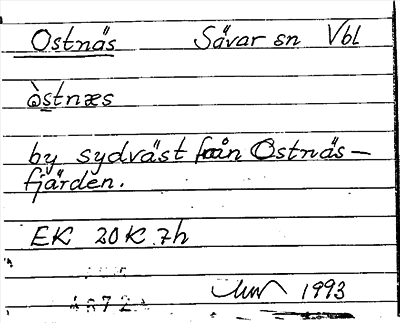 Ostnäs Sävar sn Vbl
òstnæs
by sydväst från Ostnäs-
fjärden.
EK 20K 7h
1993